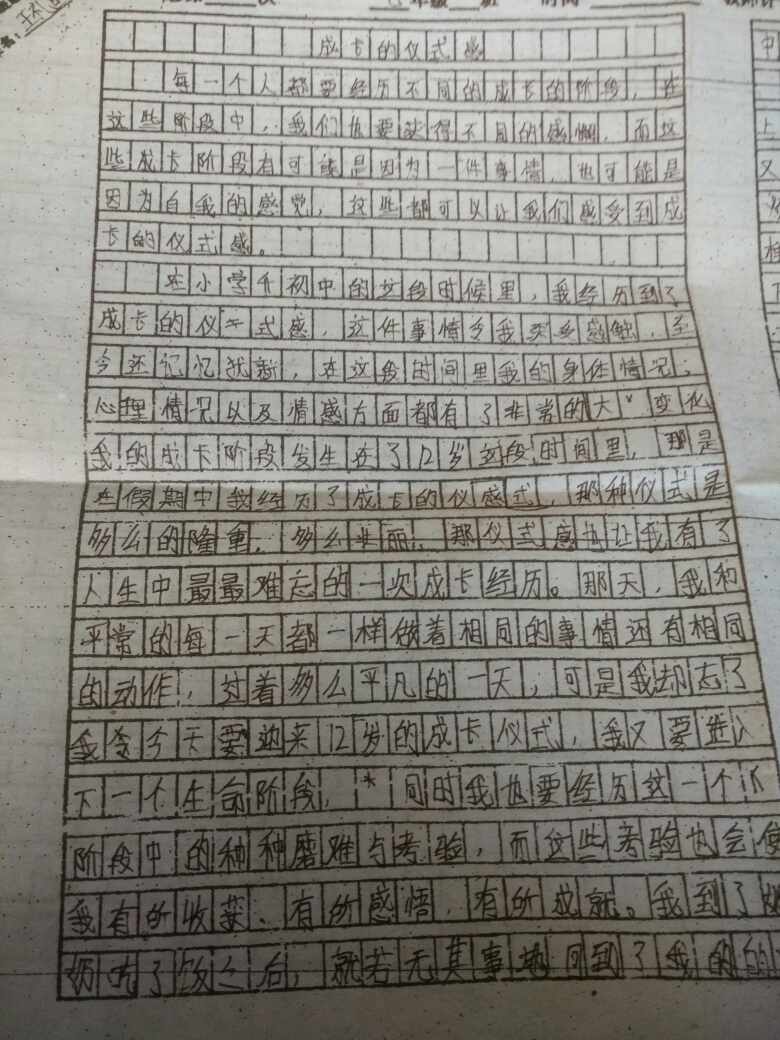 年级 班 时间
成长的仪式感
每一个人都要经历不同的成长的阶段，在
这些阶段中，我们也要获得不同的感悟，而这
些成长阶段有可能是因为一件事情，也可能是
因为自我的感觉，这些都可以让我们感受到成
长的仪式感。
在小学升初中的这段时候里，我经历到了
成长的仪式感，这件事情令我深受感触，至
今还记忆犹新，在这段时间里我的身体情况；
心理情况以及情感方面都有了非常的大变化
我的成长阶段发生在了12岁这段时间里，那是
在假期中我经历了成长的仪感式，那种仪式是
多么的隆重，多么美丽，那仪式感也让我有了
人生中最最难忘的一次成长经历。那天，我和
平常的每一天都一样做着相同的事情还有相同
的动作，过着多么平凡的一天，可是我却忘了
我今天要迎来12岁的成长仪式，我又要进入
下一个生命阶段，同时我也要经历这一个
阶段中的种种磨难与考验，而这些考验也会使
我有所收获、有所感悟，有所成就。我到了奶
奶吃了饭之后，就若无其事地回到了我的的